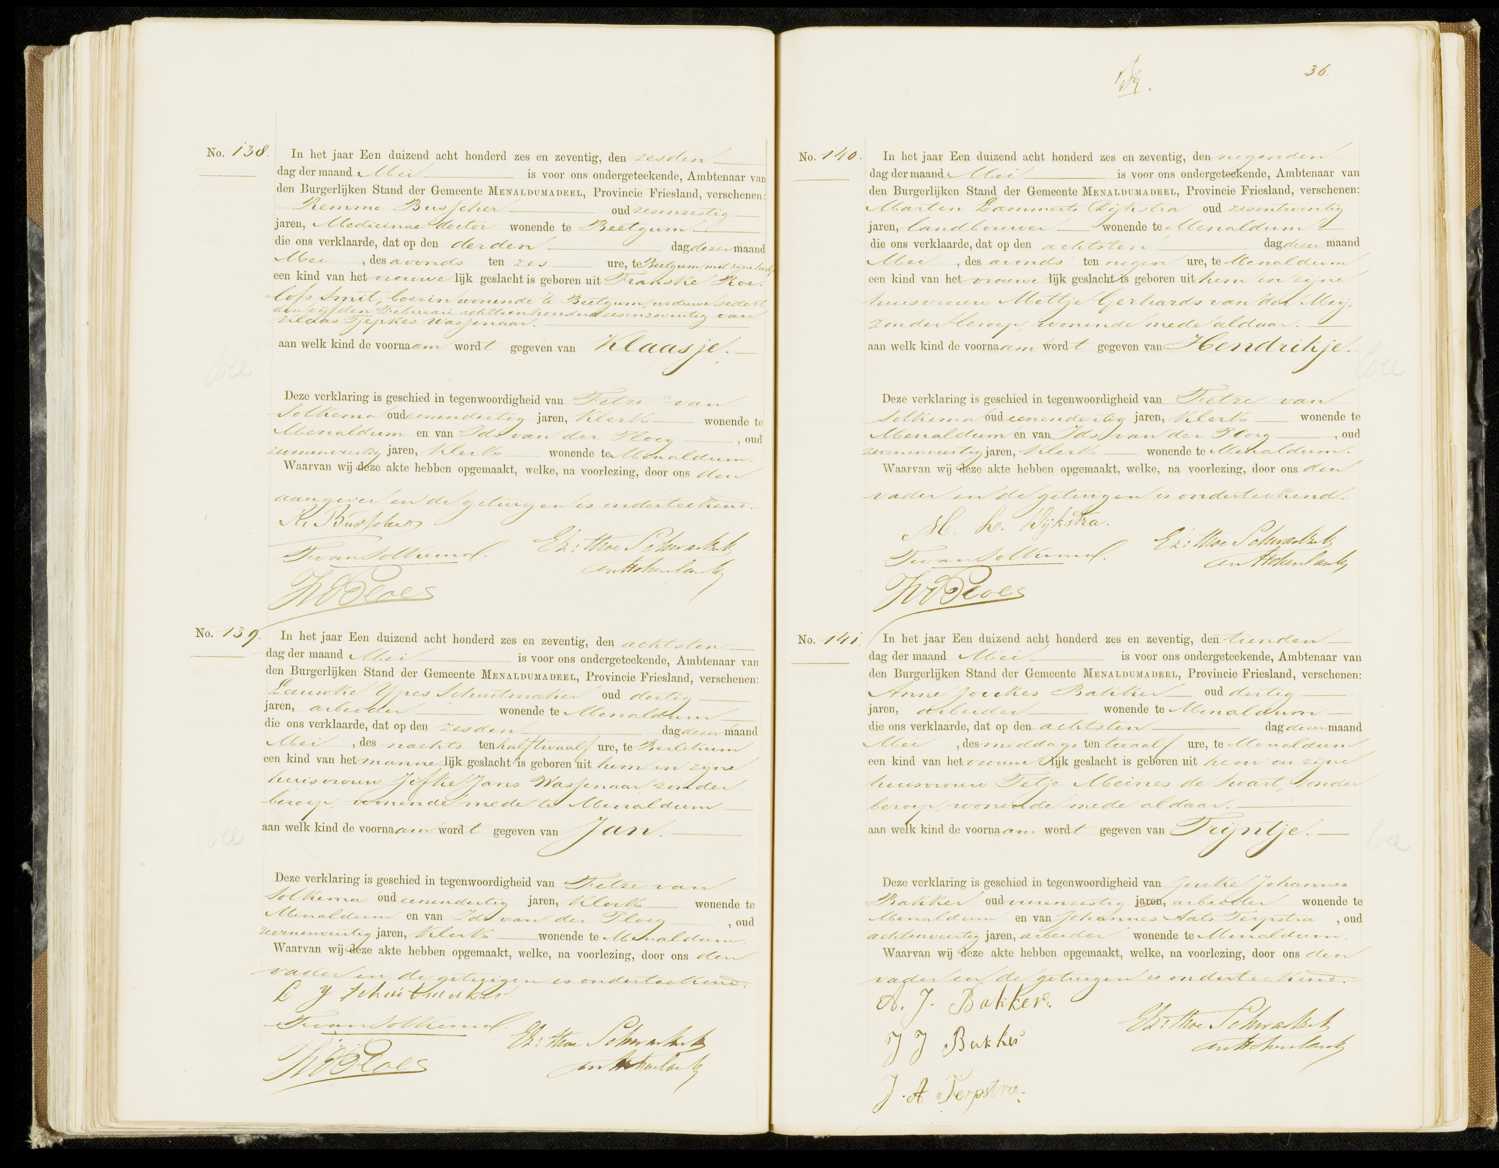 No. 138.
In het jaar Een duizend acht honderd zes en zeventig, den zesden
dag der maand Mei is voor ons ondergeteekende, Ambtenaar van
den Burgerlijken Stand der Gemeente MENALDUMADEEL, Provincie Friesland, verschenen:
Remme Busscher oud
jaren, Medicinae doctor wonende te Beetgum
die ons verklaarde, dat op den derden dag dezer maand
Mei, des avonds ten zes ure, te Beetgum
een kind van het vrouwelijk geslacht is geboren uit Trakske Roe-
lofs Smit, boerin wonende te Beetgum, weduwe sedert
den Februari achttienhonderd zesenzeventig van
Klaas Tjepkes Wassenaar.
aan welk kind de voornaam wordt gegeven van Klaasje.
Deze verklaring is geschied in tegenwoordigheid van Fetze van
Solkema oud eenendertig jaren, klerk wonende te
Menaldum en van Ids van der Ploeg, oud
jaren, klerk wonende te Menaldum.
Waarvan wij deze akte hebben opgemaakt, welke, na voorlezing, door ons den
aangever en de getuigen is onderteekend.
R. Busscher
F. van Solkema
I v d Ploeg
No. 139.
In het jaar Een duizend acht honderd zes en zeventig, den achtsten
dag der maand Mei is voor ons ondergeteekende, Ambtenaar van
den Burgerlijken Stand der Gemeente MENALDUMADEEL, Provincie Friesland, verschenen:
Leuwke Ypes Schuitmaker oud dertig
jaren, arbeider wonende te Menaldum
die ons verklaarde, dat op den zesden dag dezer maand
Mei, des nachts ten half twaalf ure, te Berlikum
een kind van het mannelijk geslacht is geboren uit hem en zijne
huisvrouw Jefke Jans Wassenaar zonder
beroep, wonende mede te Menaldum
aan welk kind de voornaam wordt gegeven van Jan.
Deze verklaring is geschied in tegenwoordigheid van Fetze van
Solkema oud eenendertig jaren, klerk wonende te
Menaldum en van Ids van der Ploeg, oud
jaren, klerk wonende te Menaldum.
Waarvan wij deze akte hebben opgemaakt, welke, na voorlezing, door ons den
vader en de getuigen is onderteekend.
L Y Schuitmaker
F. van Solkema
I v d Ploeg
36.
No. 140.
In het jaar Een duizend acht honderd zes en zeventig, den negenden
dag der maand Mei is voor ons ondergeteekende, Ambtenaar van
den Burgerlijken Stand der Gemeente MENALDUMADEEL, Provincie Friesland, verschenen:
Marten Lammerts Dijkstra oud zesentwintig
jaren, landbouwer wonende te Menaldum
die ons verklaarde, dat op den achtsten dag dezer maand
Mei, des avonds ten negen ure, te Menaldum
een kind van het vrouwelijk geslacht is geboren uit hem en zijne
huisvrouw Mettje Gerhards van der Meij.
zonder beroep, wonende mede aldaar.
aan welk kind de voornaam wordt gegeven van Hendrikje.
Deze verklaring is geschied in tegenwoordigheid van Fetze van
Solkema oud eenendertig jaren, klerk wonende te
Menaldum en van Ids van der Ploeg, oud
jaren, klerk wonende te Menaldum.
Waarvan wij deze akte hebben opgemaakt, welke, na voorlezing, door ons den
vader en de getuigen is onderteekend.
M. L. Dijkstra.
F. van Solkema
I v d Ploeg
No. 141.
In het jaar Een duizend acht honderd zes en zeventig, den tienden
dag der maand Mei is voor ons ondergeteekende, Ambtenaar van
den Burgerlijken Stand der Gemeente MENALDUMADEEL, Provincie Friesland, verschenen:
Anne Joukes Bakker oud dertig
jaren, arbeider wonende te Menaldum
die ons verklaarde, dat op den achtsten dag dezer maand
Mei, des middags ten twaalf ure, te Menaldum
een kind van het vrouwelijk geslacht is geboren uit hem en zijne
huisvrouw Fetje Meines de Swart, zonder
beroep, wonende mede aldaar.
aan welk kind de voornaam wordt gegeven van Trijntje.
Deze verklaring is geschied in tegenwoordigheid van Johannes
Bakker oud jaren, arbeider wonende te
Menaldum en van Johannes Aats Terpstra, oud
achtenveertig jaren, arbeider wonende te Menaldum.
Waarvan wij deze akte hebben opgemaakt, welke, na voorlezing, door ons den
vader en de getuigen is onderteekend.
A. J. Bakker.
J J Bakker
J. A Terpstra.